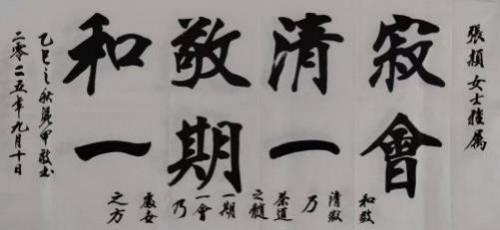 張穎女士雅屬
和敬清寂
一期一會
和敬
清寂
乃
茶道
之髓
一期
一會
乃
處世
之方
乙巳之秋
二零二五年九月十日